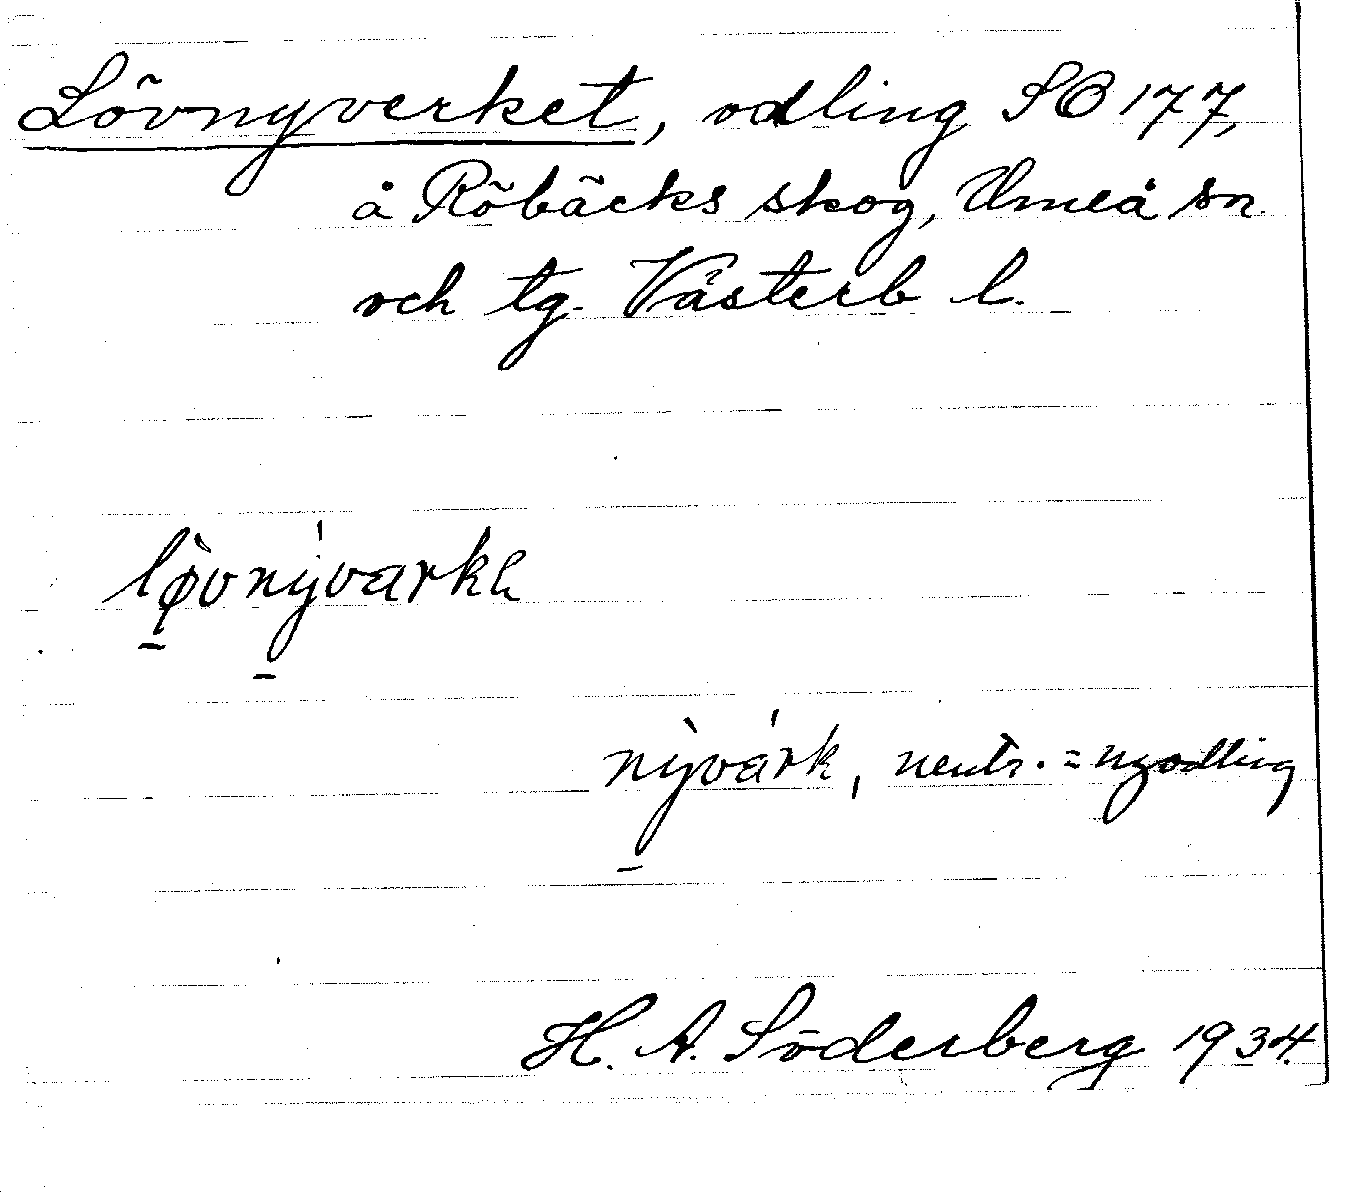 Lövnyverket, odling SO 177,
å Röbäcks skog, Umeå sn
och tg. Västerb l.
lø̀vnývarkh
nỳvárk, neutr. = nyodling
H. A. Söderberg 1934